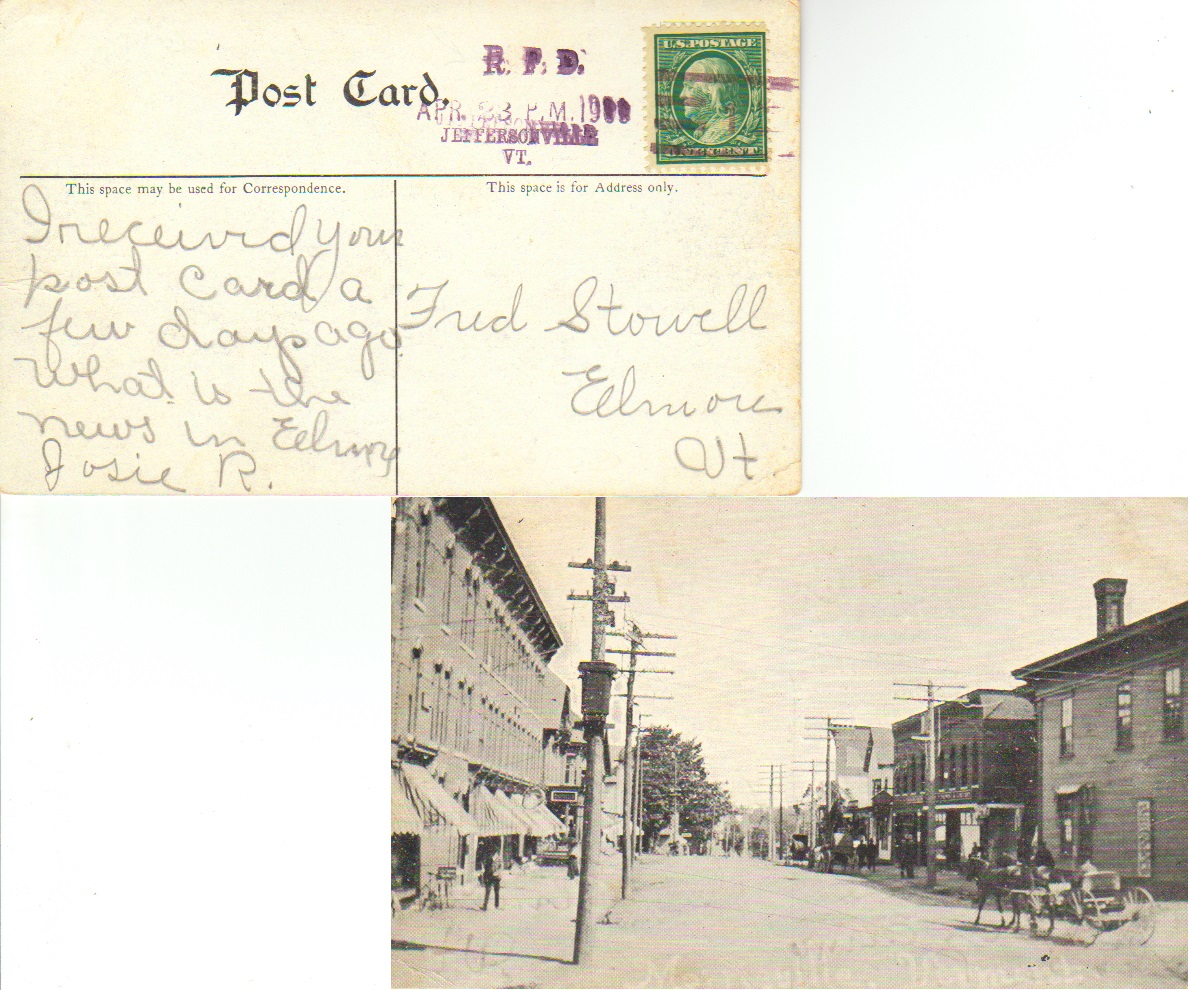 Post Card.
R. F. D.
APR. 23 P.M. 19
JEFFERSONVILLE
VT.
U.S. POSTAGE
1
This space may be used for Correspondence.
This space is for Address only.
I received your
post card a
few days ago.
What is the
news in Eelmore
Josie R.
Fred Stowell
Eelmore
Vt